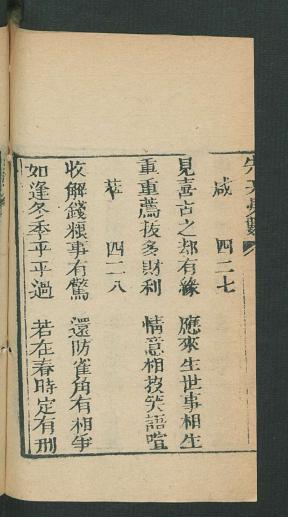 咸 四二七
見喜古之有緣 應來生世事相生
重重薦拔多財利 情意相投笑語喧
萃 四二八
收解錢粮事有驚 還防雀角有相爭
如逢冬季平平過 若在春時定有刑